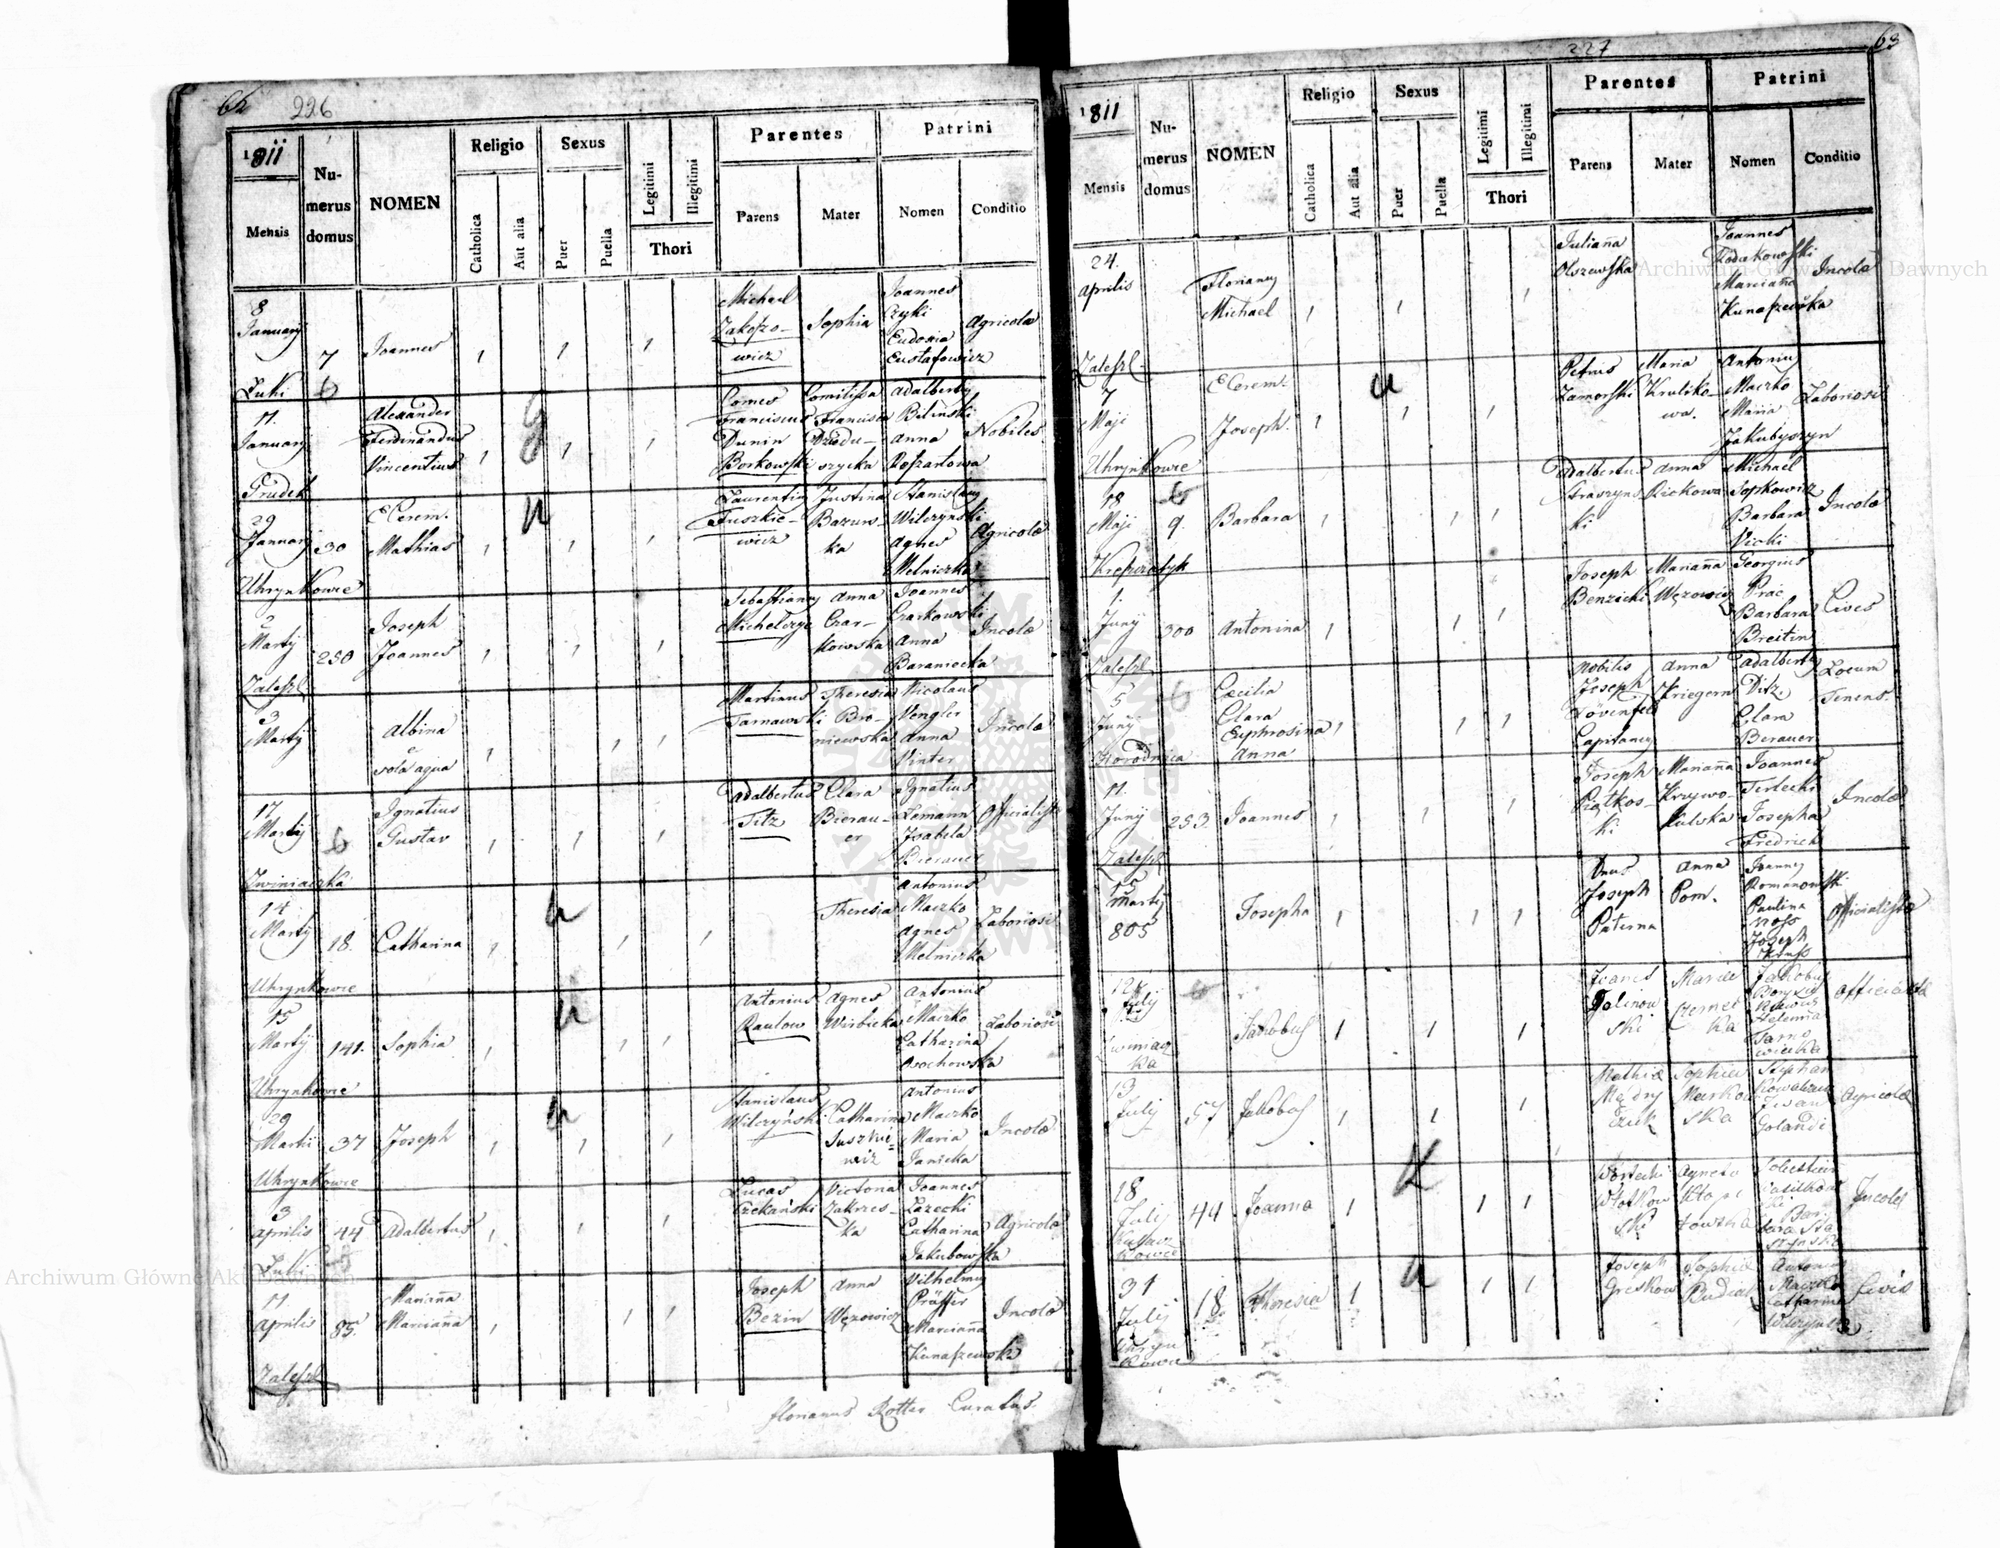 62 226
1811
Mensis
Nu-
merus
domus
NOMEN
Religio
Catholica
Aut alia
Sexus
Puer
Puella
Legitimi
Illegitimi
Thori
Parentes
Parens
Mater
Patrini
Nomen
Conditio
8
January
Luki
7
Joannes
Michael
Zakoszo-
wicz
Sophia
Joannes
Eudoxia
Eustafowicz
Agricola
11
January
Grudek
Alexander
Ferdinandus
Vincentius
Comes
Franciscus
Dunin
Borkowski
Comitissa
Francisca
Dziedu-
szycka
Adalbertg
Bilinski
Anna
Nobiles
29
January
Uhrynkowce
30
E Cerem.
Mathias
Laurentiy
Tuszkie-
wicz
Justina
Bazuw-
ka
Stanislaus
Wilczynski
Agnes
Melniczka
Agricolæ
2
Martij
Zaleszl
250
Joseph
Joannes
Sebastianus
Anna
Czar-
kowska
Joannes
Czarkowski
Anna
Baraniecka
Incolæ
3
Martij
Albina
e
sola aqua
Martinus
Tarnawski
Theresia
Bro-
niewska
Nicolaus
Vengler
Anna
Vinter
Incolæ
17
Martij
Zwiniaczka
Ignatius
Gustav
Adalbertus
Titz
Clara
Bierau-
er
Ignatius
Lemann
Isabela
Bierauer
Officialista
14
Martij
Uhrynkowce
18.
Catharina
Theresia
Antonius
Maczko
Agnes
Melniczka
Laboriosi
15
Martij
Uhrynkowce
141.
Sophia
Antonius
Raulow
Agnes
Wirbicka
Antonius
Maczko
Catharina
Osochowska
Laboriosi
29
Martii
Uhrynkowce
37
Joseph
Stanislaus
Wilczyński
Catharina
Suszkie-
wicz
Antonius
Maczko
Maria
Janicka
Incolæ
3
Aprilis
Luki
44
Adalbertus
Lucas
Czekański
Victoria
Zakrzes-
ka
Joannes
Lazecki
Catharina
Jakubowska
Agricolæ
11
Aprilis
Zaleszl
85.
Marianna
Marcianna
Joseph
Bezin
Anna
Węzowicz
Vilhelmy
Präffer
Marcianna
Kunaszewska
Incolæ
Florianus Rotter Curatus.
227 63
1811
Mensis
Nu-
merus
domus
NOMEN
Religio
Catholica
Aut alia
Sexus
Puer
Puella
Legitimi
Illegitimi
Thori
Parentes
Parens
Mater
Patrini
Nomen
Conditio
24.
Aprilis
Zaleszl-
Florianus
Michael
Julianna
Olszewska
Joannes
Marcianna
Kunaszewska
Incolæ
7
Maji
Uhrynkowce
E Cerem.
Joseph.
Petrus
Zamorski
Maria
Kruliko-
wa.
Antoniy
Maczko
Maria
Jakubyszyn
Laboriosi
18
Maji
9.
Barbara
Adalbertus
Straszyns
ki
Anna
Rickowa
Michael
Sopkowicz
Barbara
Vicki
Incolæ
1
Juny
Zaleszl
300
Antonina
Joseph
Benzicki
Marianna
Węzowicz
Georgius
Prac
Barbara
Breitin
Cives
5
Juny
Horodnica
Cæcilia
Clara
Euphrosina
Anna
Nobilis
Joseph
Lövenfeld
Capitaney
Anna
Kriegern
Adalbertg
Ditz.
Clara
Berauer
Locum
Tenens.
11.
Juny
Zaleszl
253.
Joannes
Joseph
Piątkos-
ki
Marianna
Krzywo-
kulska
Joannes
Terlecki
Josepha
Fredrich
Incolæ
15
Martij
805
Josepha
Dnus
Joseph
Paterna
Anna
Pom.
Joannes
Romanowski
Paulina
Joseph
Officialistæ
12
Julij
Zwiniacz
ka
Jakobus
Ivanes
Galinow
ski
Marie
Czernet
ka
Jakobus
Helenna
Tarno
wiecka
Officialista
13
Julij
57
Jakobus
Mathia
Mędry
Sophia
Marko
ska
Stephan
Kowalczuk
Iwan
Golandi
Agricolæ
18
Julij
44
Joanna
Woitechi
Wlotkow
ski
Agneta
Klopo
towska
Incolæ
31
Julij
Uhryn
kowce
18.
Theresia
Joseph
Greskow
Sophia
Budial
Antoniy
Maczko
Catharina
Wilczynska
Civis
Archiwum Główne Akt Dawnych